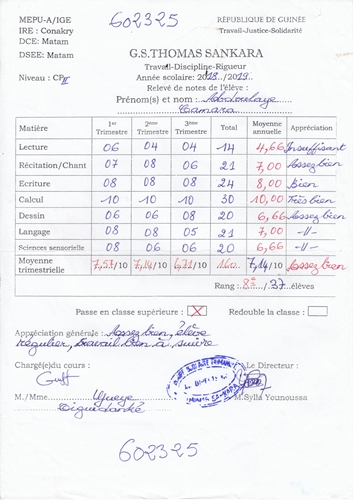 602325
MEPU-A/IGE RÉPUBLIQUE DE GUINÉE
IRE : Conakry Travail-Justice-Solidarité
DCE: Matam
DSEE: Matam G.S.THOMAS SANKARA
Travail-Discipline-Rigueur
Niveau : CPII Année scolaire: 2018../2019..
Relevé de notes de l'élève :
Prénom(s) et nom : Abdoulaye
Camara
Matière 1er Trimestre 2ème Trimestre 3ème Trimestre Total Moyenne annuelle Appréciation
Lecture 06 04 04 14 4,66 Insuffisant
Récitation/Chant 07 08 06 21 7,00 Assez bien
Ecriture 08 08 08 24 8,00 Bien
Calcul 10 10 10 30 10,00 Très bien
Dessin 06 06 08 20 6,66 Assez bien
Langage 08 08 05 21 7,00 -//-
Sciences sensorielle 08 06 06 20 6,66 -//-
Moyenne trimestrielle 7,57/10 7,14/10 6,71/10 160 7,14/10 Assez bien
Rang : 8e /37 élèves
Passe en classe supérieure : X Redouble la classe :
Appréciation générale : Assez bien, élève
régulier, travail bien à suivre
Chargé(e)du cours : Le Directeur :
M./Mme M.Sylla Younoussa
602325